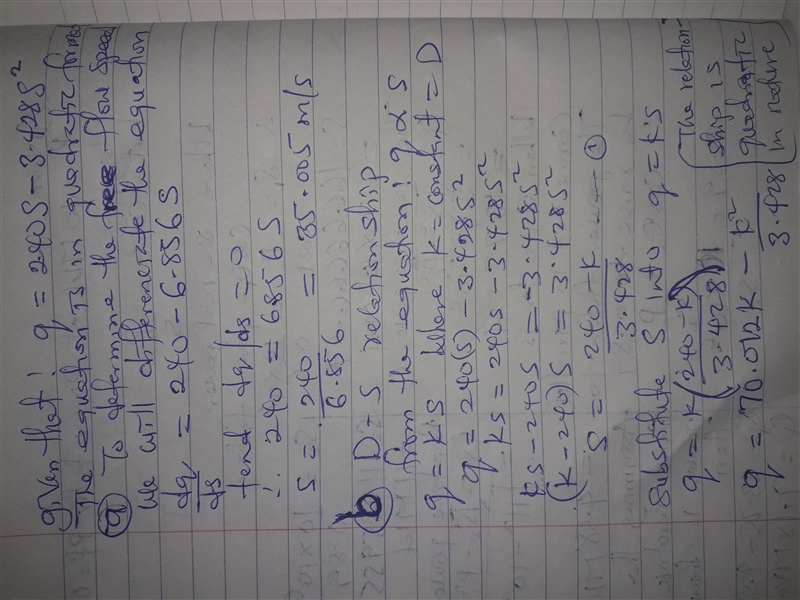 given that: q = 240S - 3.428S²
The equation is in quadratic format
(a) To determine the free flow speed
We will differentiate the equation
dq/ds = 240 - 6.856S
tend dq/ds = 0
∴ 240 = 6856S
S = 240/6.856 = 35.005 m/s
(b) D-S relationship
from the equation: q α S
q = KS where K = constant = D
q = 240(S) - 3.428S²
KS = 240S - 3.428S²
KS - 240S = -3.428S²
(K-240)S = 3.428S²
S = (240-K)/3.428 ---- ①
Substitute S into q = KS
q = K(240-K/3.428)
q = 70.012K - K²/3.428
The relation-
ship is
quadratic
in nature